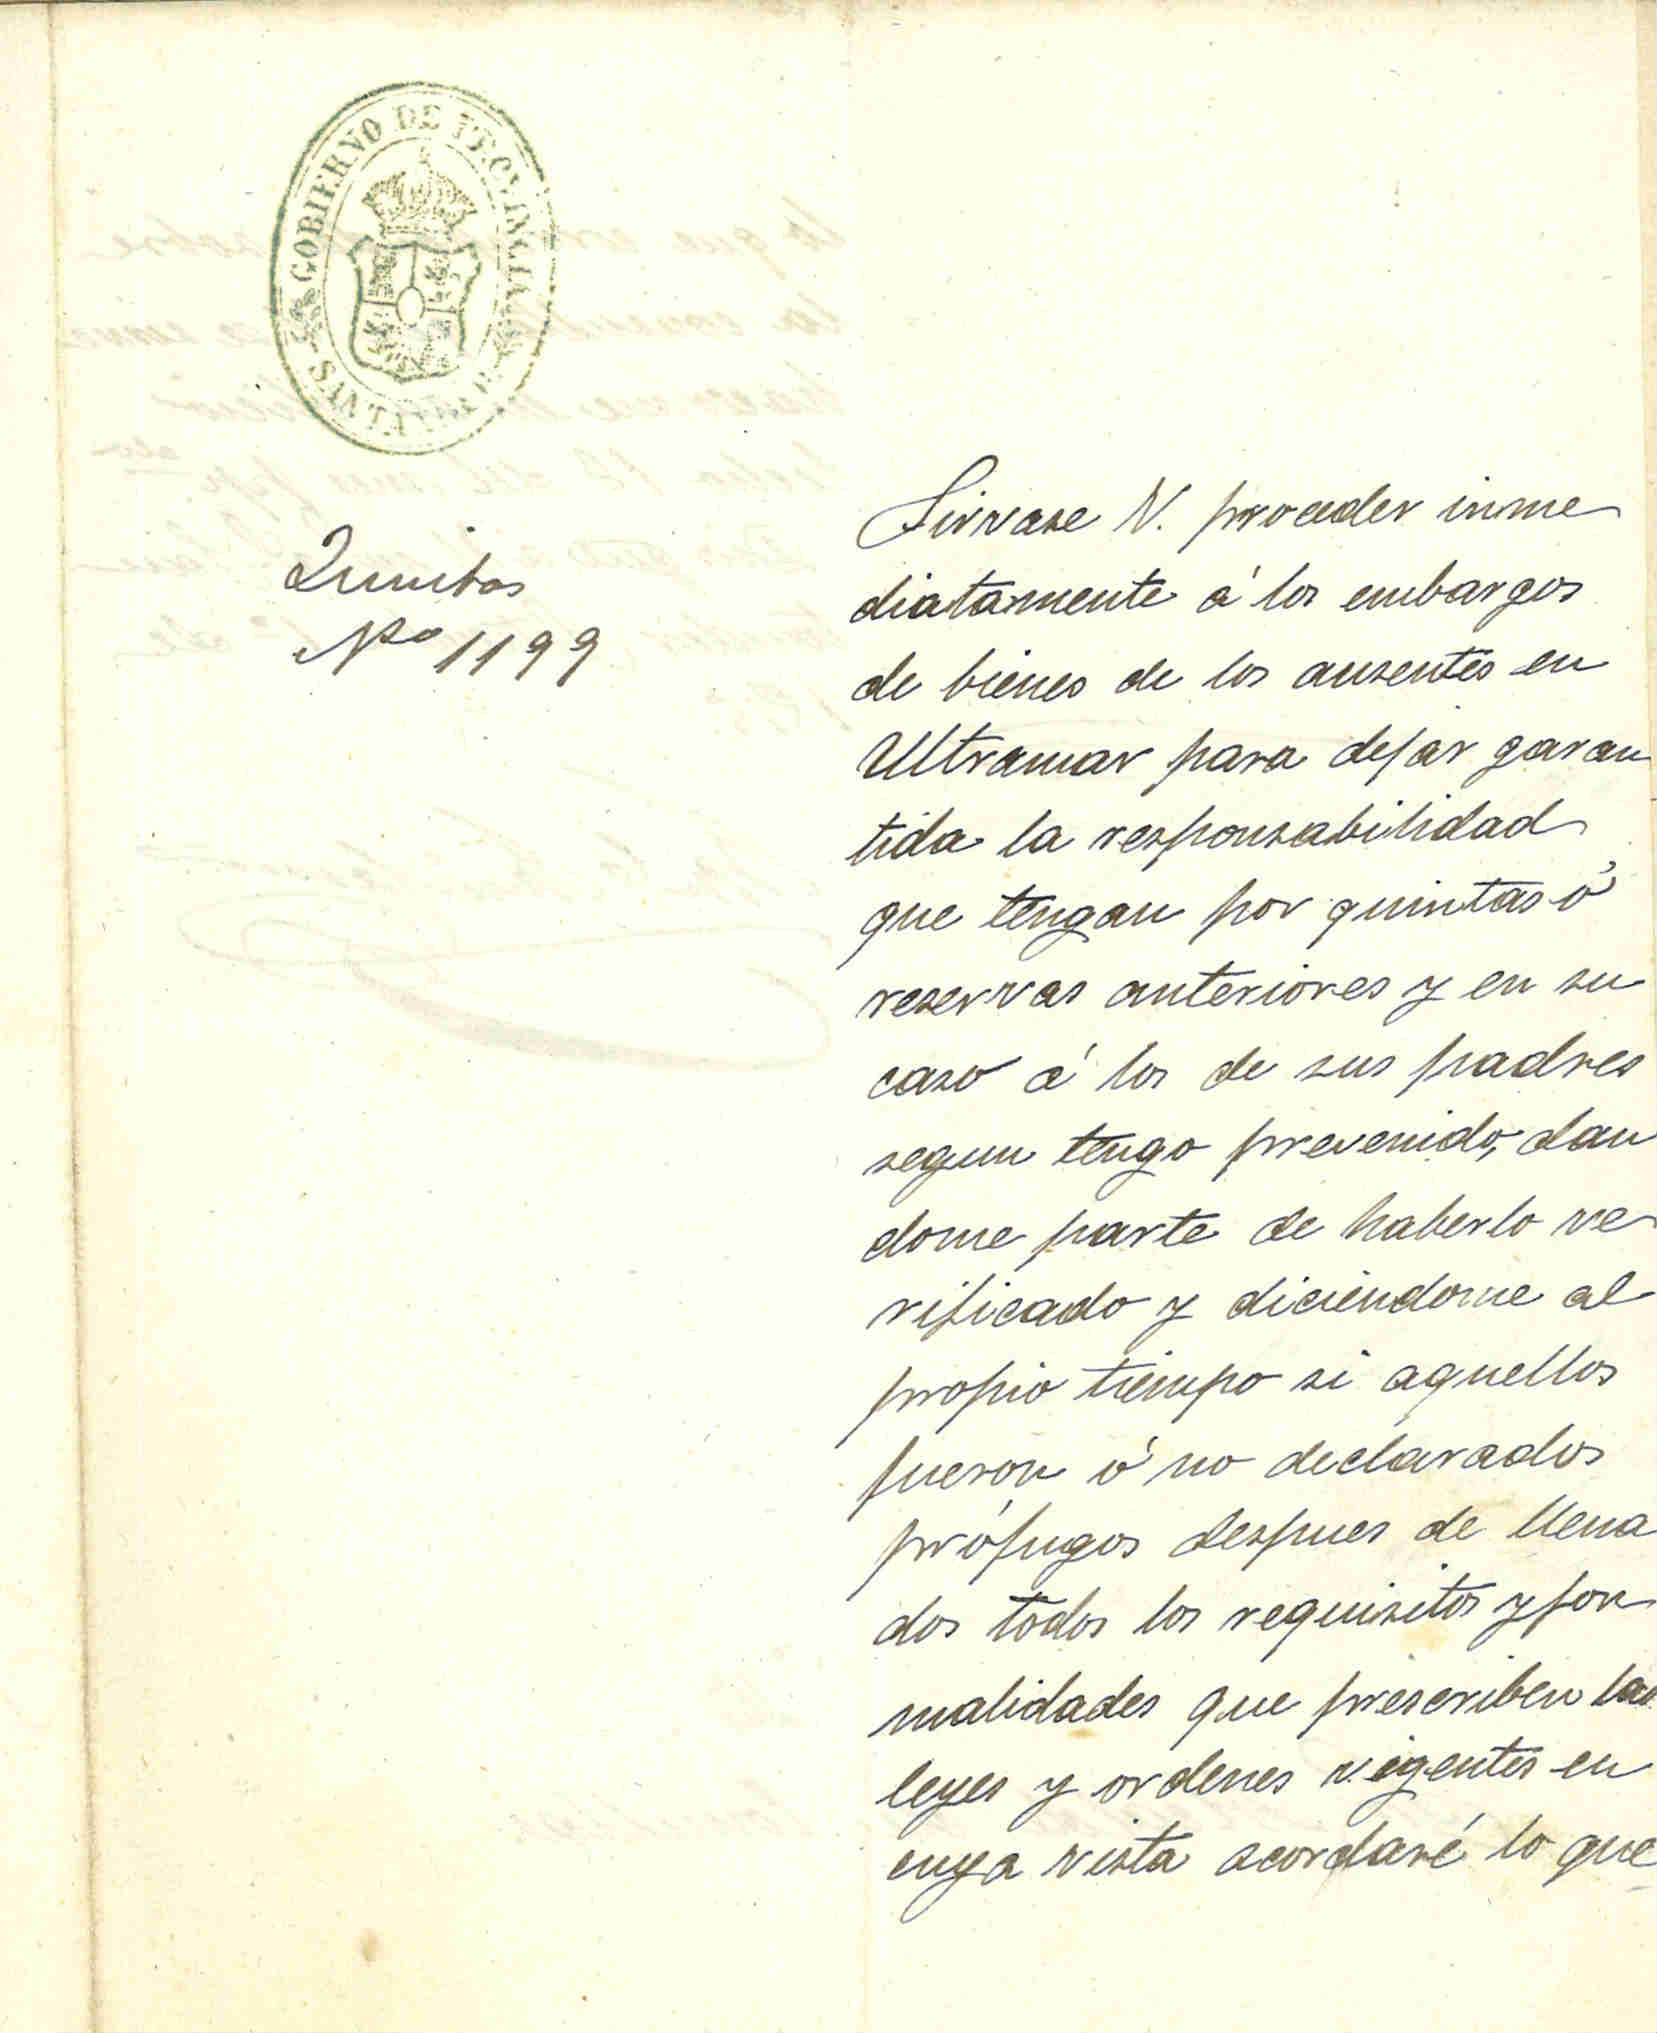 GOBIERNO DE PROVINCIA
SANTANDER
Quintas
Nº 1199
Sirvase V. proceder inme
diatamente á los embargos
de bienes de los ausentes en
Ultramar para dejar garan
tida la responsabilidad
que tengan por quintas ó
reservas anteriores y en su
caso á los de sus padres
segun tengo prevenido, dan
dome parte de haberlo ve
rificado y diciéndome al
propio tiempo si aquellos
fueron ó no declarados
prófugos despues de llena
dos todos los requisitos y for
malidades que prescriben las
leyes y ordenes vigentes en
cuya vista acordaré lo que